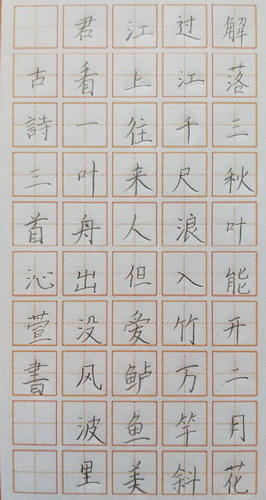 解落三秋叶能开二月花
过江千尺浪入竹万竿斜
江上往来人但爱鲈鱼美
君看一叶舟出没风波里
古詩三首沁萱書